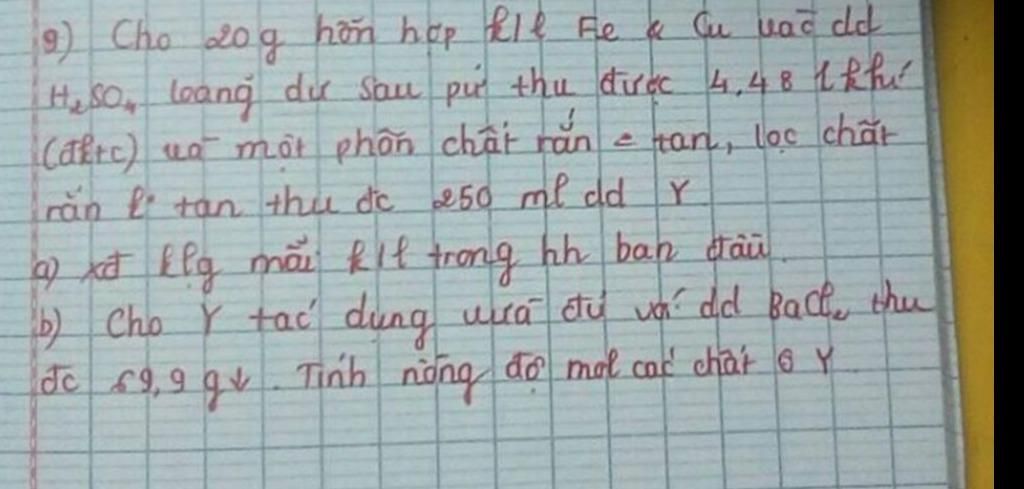 9) Cho 20g hỗn hợp kll Fe & Cu vào dd
H₂SO₄ loãng dư sau pứ thu được 4,48 l khí
(đktc) và một phần chất rắn = tan, lọc chất
rắn k tan thu đc 250 ml dd Y
a) xđ klg mỗi klt trong hh ban đầu
b) Cho Y tác dụng vừa đủ với dd BaCl₂ thu
đc 69,9 g↓. Tính nồng độ mol các chất ở Y